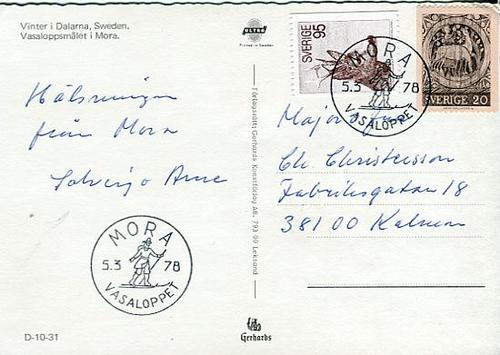 Vinter i Dalarna, Sweden.
Vasaloppsmålet i Mora.
ULTRA
Printed in Sweden
SVERIGE 95
SVERIGE 20
MORA
5.3 78
VASALOPPET
Hälsningar
från Mora
Solveig o Arne
Major o fru
Ch. Christersson
Fabriksgatan 18
381 00 Kalmar
MORA
5.3 78
VASALOPPET
Förlagsrätt: Gerhards Konstförlag AB, 793 00 Leksand
D-10-31
Gerhards